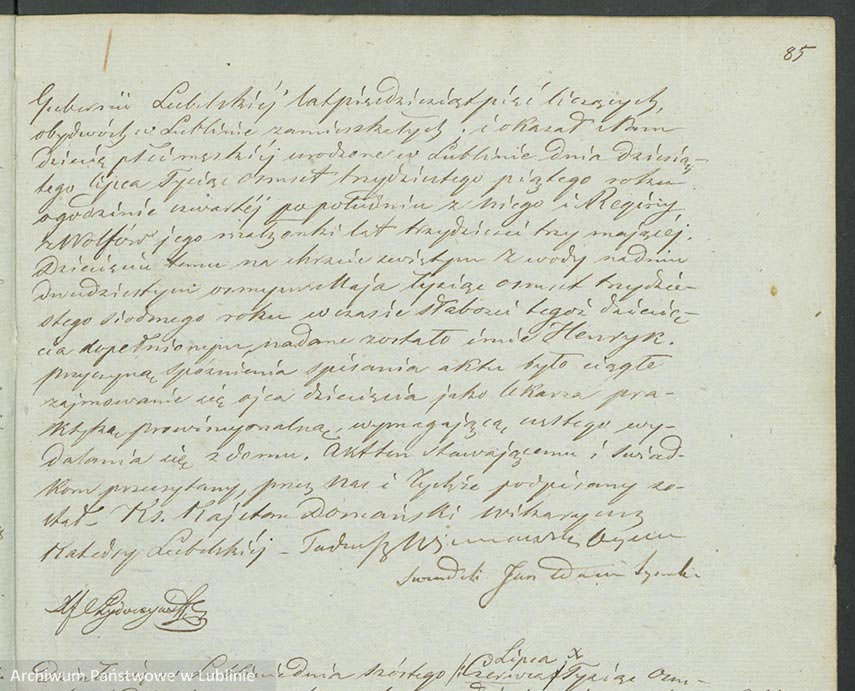 85
Gubernii Lubelskiéj lat pięćdziesiąt pięć liczących,
obydwóch w Lublinie zamieszkałych, i okazał Nam
dziecię płci męzkiéj urodzone w Lublinie dnia dziesią-
tego Lipca Tysiąc osmset trzydziestego piątego roku
o godzinie czwartéj po południu z niego i Reginy
z Wolfów jego małżonki lat trzydzieści trzy mającéj.
Dziecięciu temu na chrzcie świętym z wody na dniu
dwudziestym osmym Maja Tysiąc osmset trzydzie-
stego siodmego roku w czasie słabości tegoż dziecię-
cia dopełnionym, nadane zostało imie Henryk.
przyczyną spóźnienia spisania aktu było ciągłe
zajmowanie się ojca dziecięcia jako lekarza pra-
ktyką prowincyonalną, wymagającą częstego wy-
dalania się z domu. Akt ten stawającemu i świad-
kom przeczytany, przez Nas i Tychże podpisany zo-
stał. Ks. Kajetan Domański wikaryusz
Katedry Lubelskiéj – Tadeusz Wieniawski Ojciec
Jan
dnia szóstego /: Czerwca Lipca x Tysiąc Osm-
Archiwum Państwowe w Lublinie